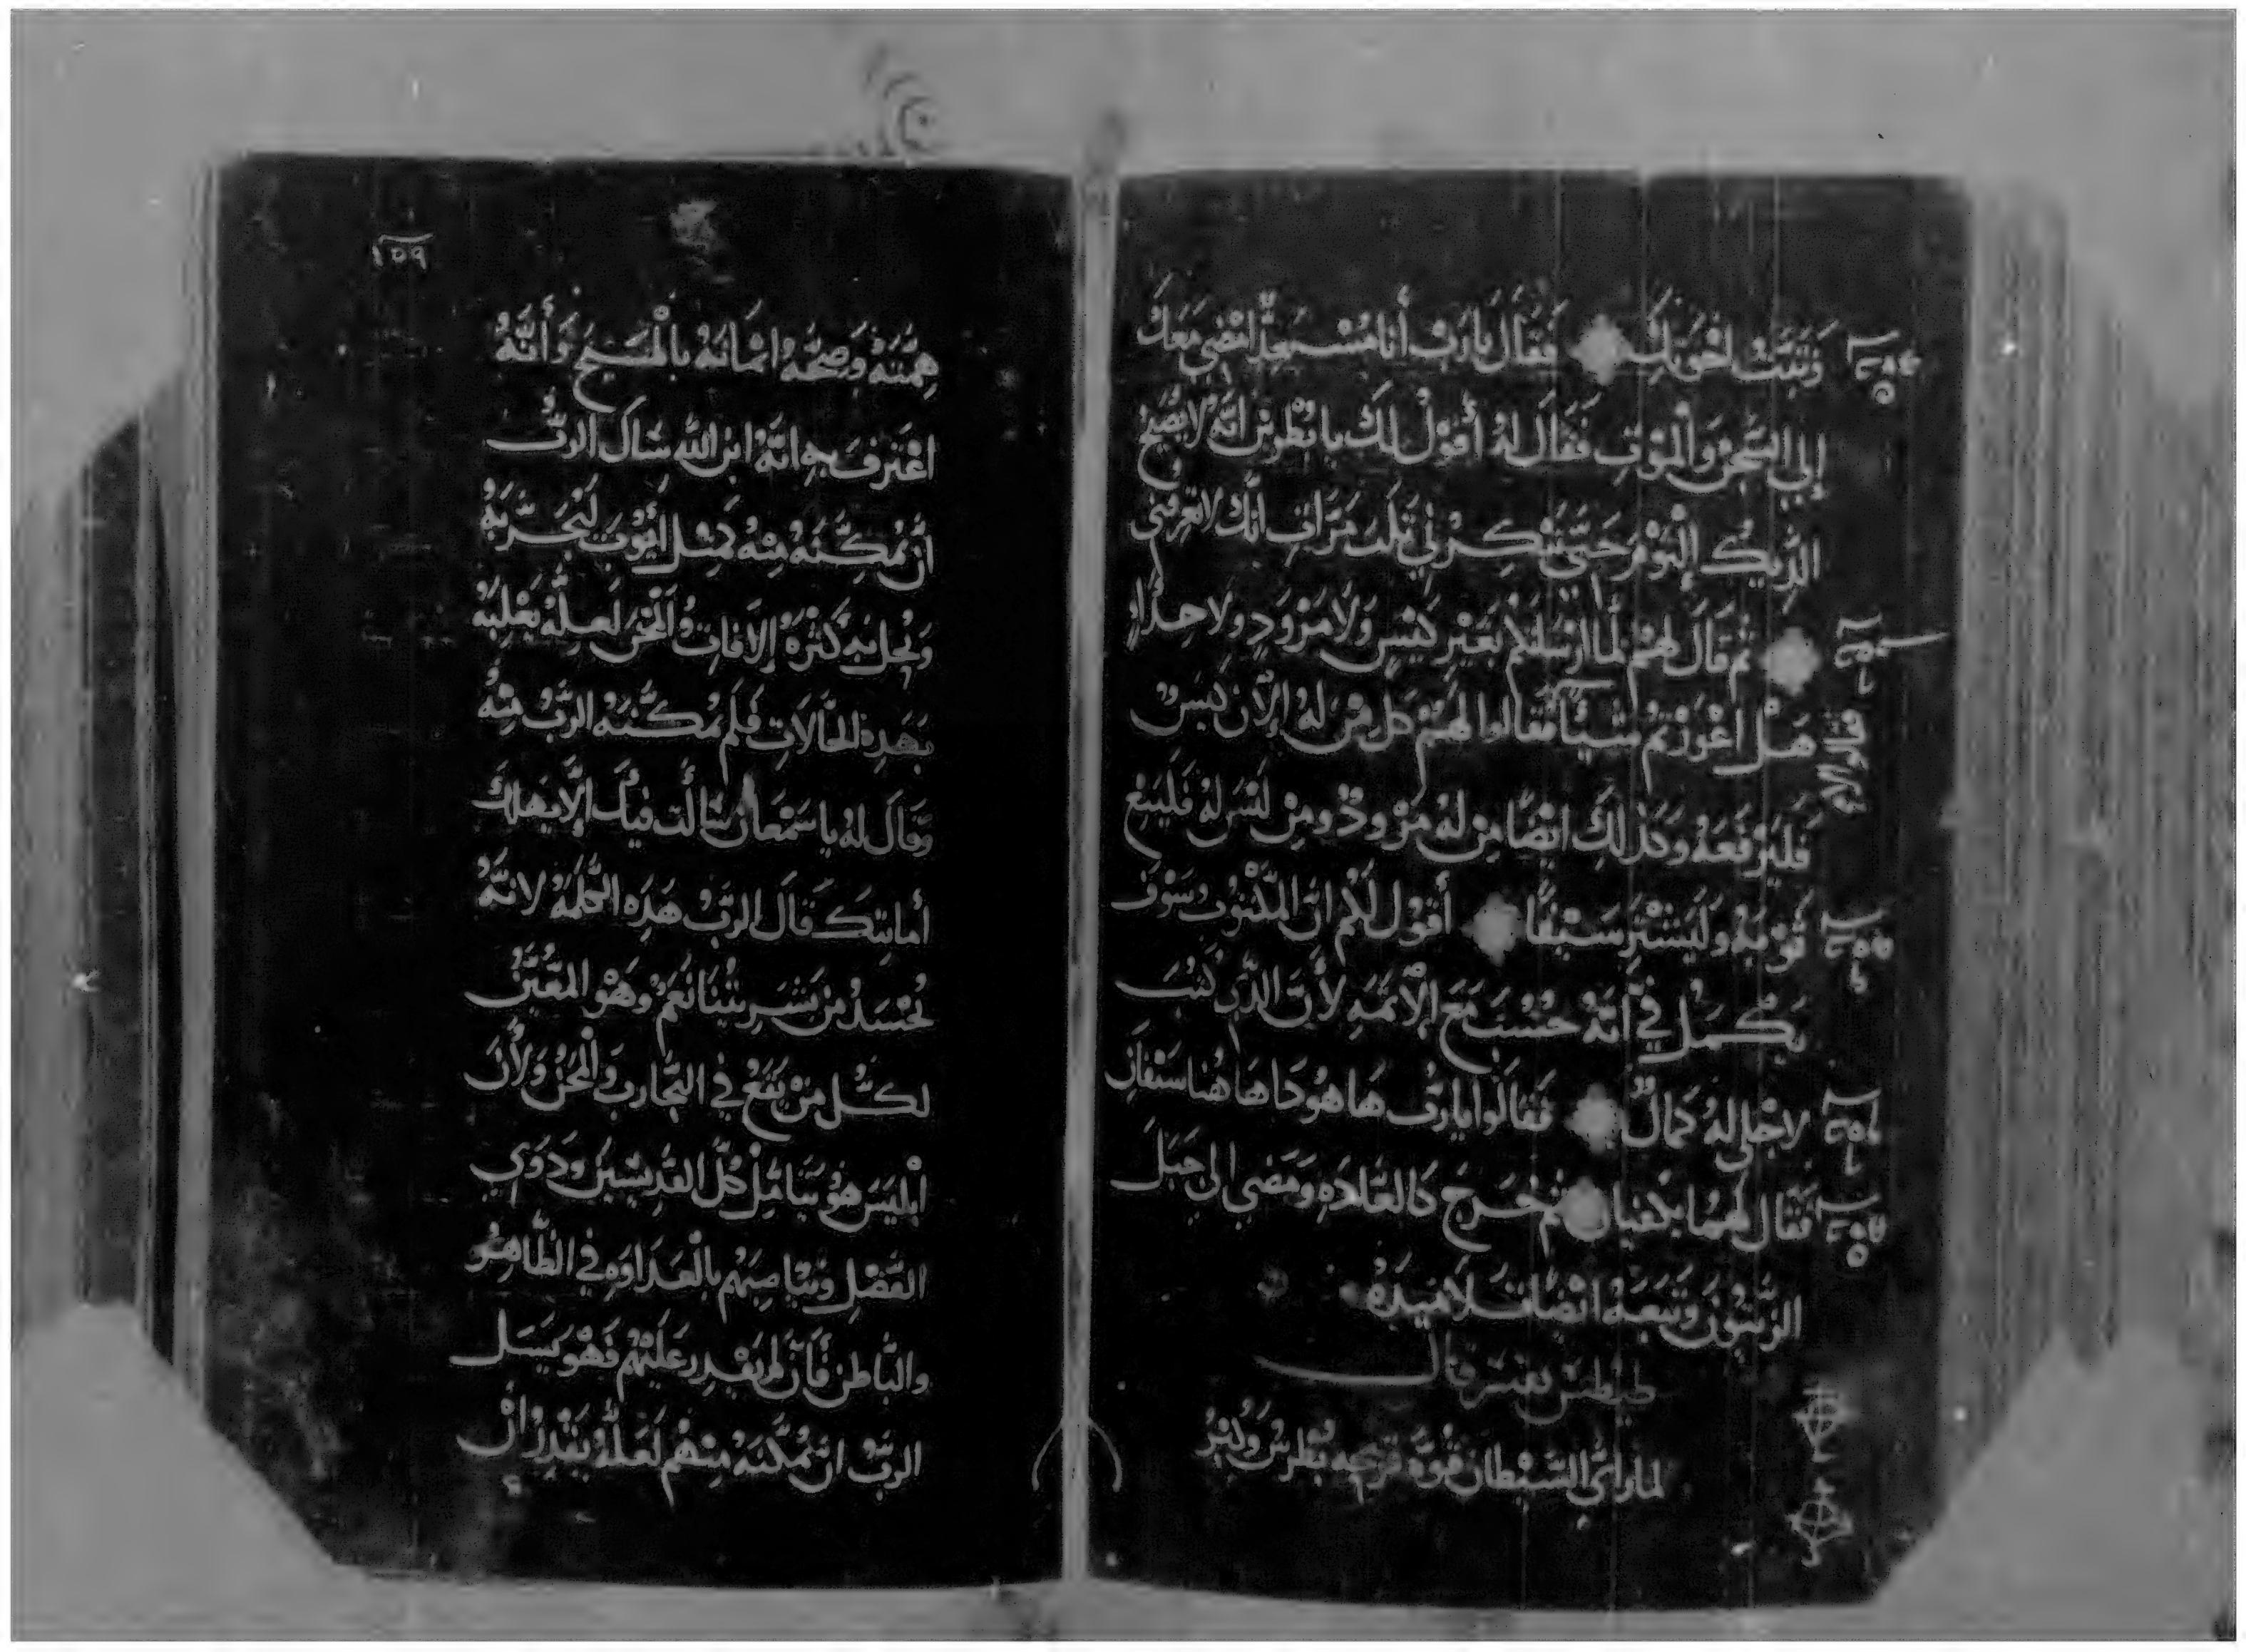 وَتثبَّت اخوتك فقال يارب أنا مُستعدٌّ امضي معك
إلي السجن والموت فقال له أقول لك يا بطرس انه لا يصيح
الديك إليوم حتي تنكرني تلت مرات انك لا تعرفني
ثم قال لهم لما ارسلتكم بغير كيس ولا مزود ولا حذا
هل اعوزتم شيئا فقالوا لهم كل من له الان كيس
فليرفعه وكذلك ايضا من له مزود ومن ليس له فليبع
ثوبه وليشتر سيفًا أقول لكم ان المكتوب سوف
يكمل في أنه حُسب مع الأثمه لأن الذي كتب
لاجلي له كمالٌ فقالوا يارب ها هوذا هاهنا سيفان
فقال لهما يكفيان ثم خرج كالعاده ومضي الي جبل
الزيتون وتبعه ايضًا تلاميذه
طيطس يفسر قال
لما رائي الشيطان قوة بطرس وكبر
١٥٩
همته وصحة ايمانه بالمسيح وأنه
اعترف به انه ابن الله سال الرب
أن يمكنه منه كمثل أيوب ليجربه
ويحل به كثرة الافات والمحن لعله يغلبه
بهذه الحالات فلم يمكنه الرب منه
وقال له يا سمعان سالت فيك إلا يهلك
أمانتك قال الرب هذه الكلمة لانه
تجسد من بشريتنا نعم وهو المعين
لكل من يقع في التجارب والمحن ولأن
ابليس هو يتامل كل القديسين ودوي
الفضل ويناصبهم بالعداوه في الظاهر
والباطن فأن لم يقدر عليهم فهو يسل
الرب ان يمكنه منهم لعله يقدر أن